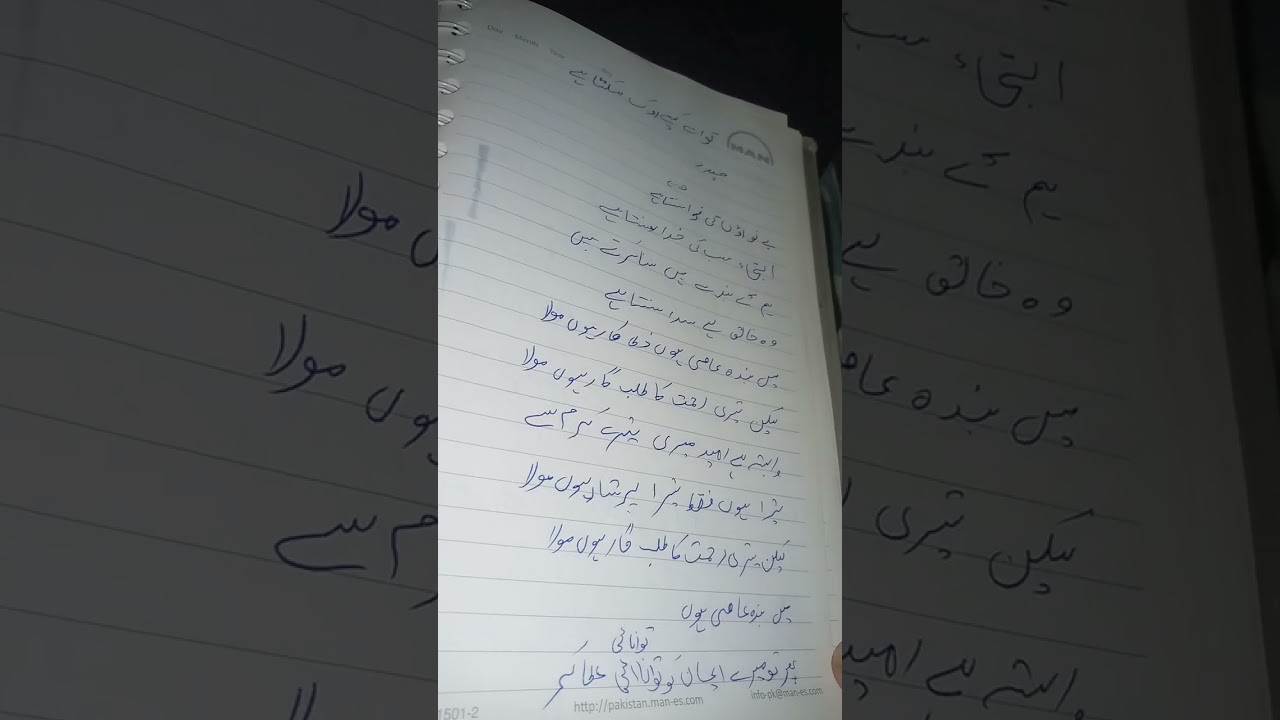 Day Month Year
MAN
حمد
بے نواؤں کی نوا سنتا ہے
التجاء سب کی خدا سنتا ہے
ہم کے بندے ہیں سا کرتے ہیں
وہ خالق ہے سدا سنتا ہے
میں بندہ عاصی ہوں خطا کار ہوں مولا
لیکن تیری رحمت کا طلب گار ہوں مولا
وابستہ ہے امید میری تیرے کرم سے
تیرا ہوں فقط تیرا پرستار ہوں مولا
لیکن تیری رحمت کا طلب گار ہوں مولا
میں بندہ عاصی ہوں
توانائی
پھر تو میرے ایمان کو توانائی عطا کر
info-pk@man-es.com
http://pakistan.man-es.com
1501-2